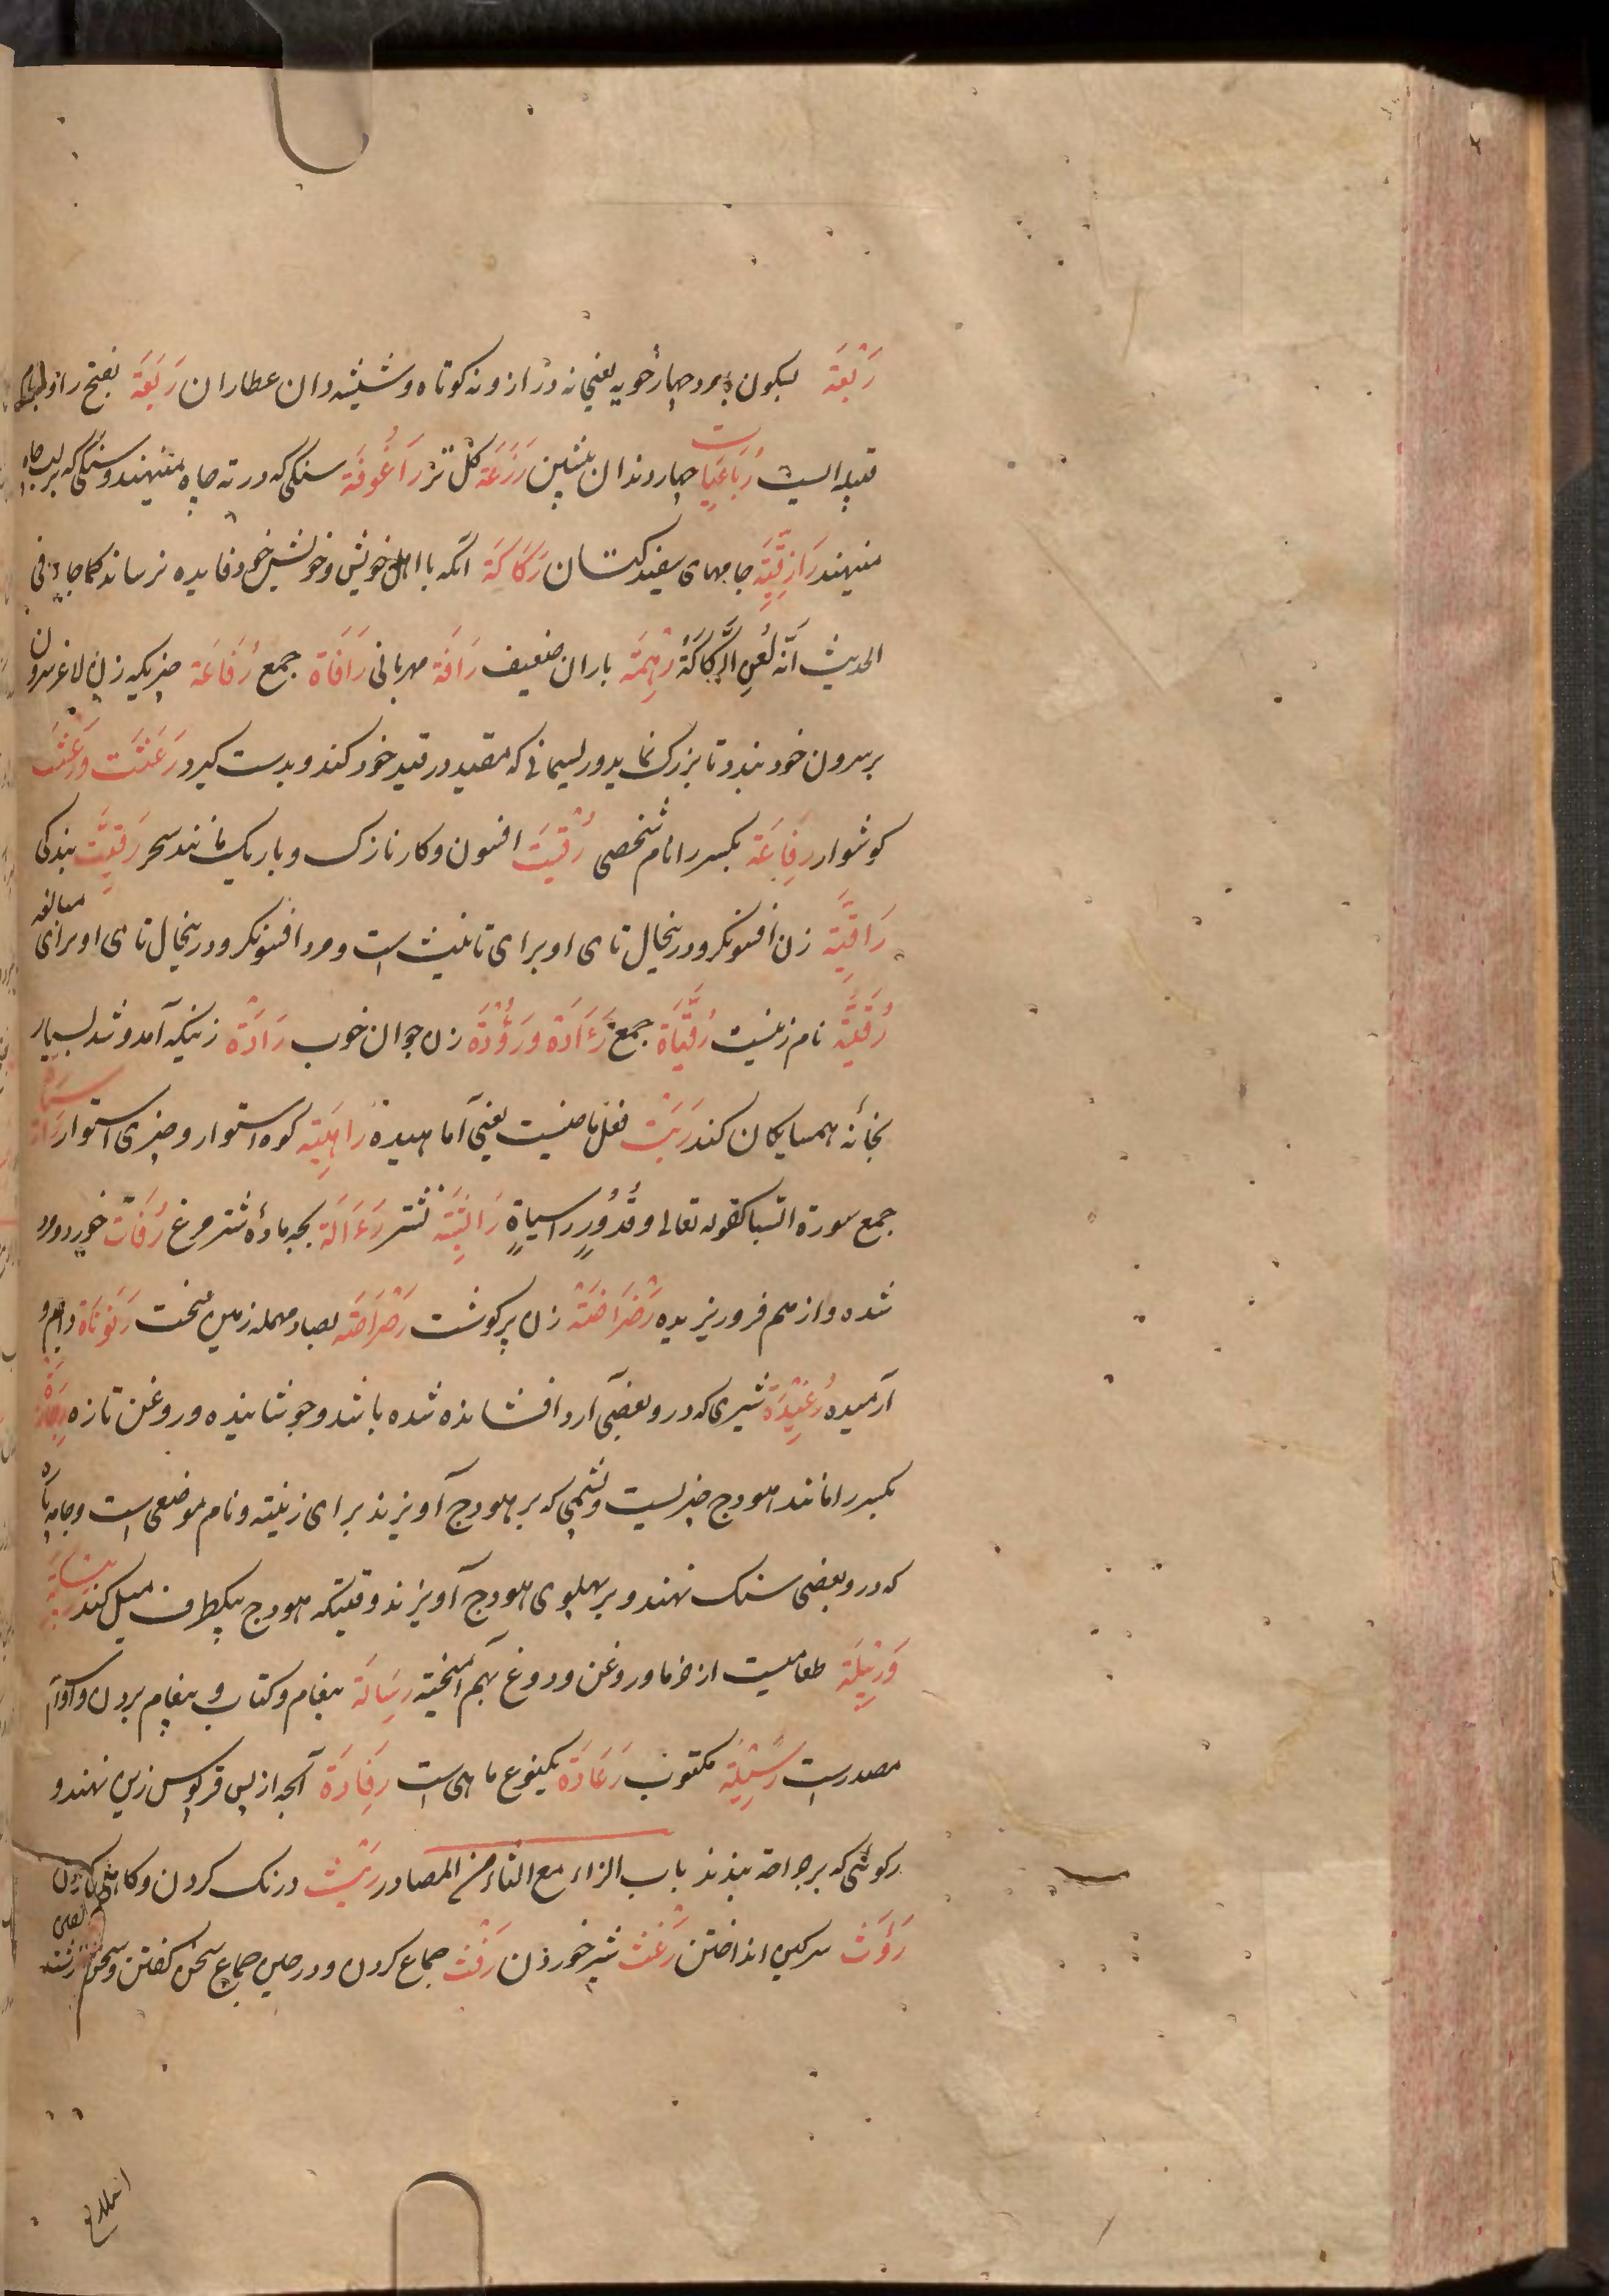 رَبْعَة بسکون با مرد چهارخویه یعنی نه دراز و نه کوتاه و شیشه دان عطاران رَبَعَة بفتح را و با نام
قبیله ایست رُبَاعِیَات چهار دندان پیشین رَزَغَة گل تر رَاعُوفَة سنگی که در ته چاه منیهند و سنگی که بر لب چاه
منیهند رَازِقِیَّة جامهای سفید کتان رَکَاکَة آنکه با اهل خویش و خویش خود فایده نرساند کما جاء فی
الحدیث اَنَّه لُعِن الرَّکَاکَةُ رِهْمَة باران ضعیف رَافَة مهربانی رَافَاة جمع رُفَاعَة چیزیکه زن لاغر سرون
بر سرون خود بندد تا بزرک نماید و ریسمانی که مقید در قید خود کند و بدست کیرد رَعْثَت وَرَعَثَت
کوشوار رِفَاعَة بکسر را نام شخصی رُقْیَت افسون و کار نازک و باریک مانند سحر رَقِیَّت بندکی
رَاقِیَّة زن افسونکر و درینحال تای او برای تانیث است و مرد افسونکر و درینحال تای او برای مبالغه
رُقَیَّة نام زنیست رُقَیَّاة جمع رَءَادَة وَرُؤْدَة زن جوان خوب رَادَة زنیکه آمد و شد بسیار
بخانه همسایکان کند رَبَت فعل ماضیست یعنی آماهیدة رَاسِیَة کوه استوار و چیزی استوار
جمع سورة السبا کقوله تعالی وقُدُورٍ راسیاةٍ رَانِیَة نشتر رَءَالَة بچه مادهٔ شتر مرغ رُفَات خورد و مرد
شده و از هم فرو ریزیده رَضْرَاضَة زن پر کوشت رَصْرَاصَة بصاد مهمله زمین سخت رَهْوَنَاة دایم و
آرمیده رَغِیْدَة شیری که در و بعضی آرد افشانده شده باشد و جوشانیده و روغن تازه
بکسر را مانند هودج چیزیست و پشمی که بر هودج آویزند برای زینته و نام موضعی است و جامه
که در و بعضی سنک نهند و بر پهلوی هودج آویزند و قتیکه هودج بیکطرف میل کند
وَرِبْیَلَة طعامیست از خرما و روغن و دوغ بهم آمیخته رِسَالَة پیغام و کتاب و پیغام بردن و
مصدرست رَسِیْلَة مکتوب رَعَادَة یکنوع ماهی است رِفَادَة آنچه از پس قرپوس زین نهند و
رکوئی که بر جراحة بندند باب الراء مع الثاء من المصادر رَیْث درنک کردن و کاهلی کردن
رَوْث سرکین انداختن رَغْث شیر خوردن رَفَث جماع کردن و در حین جماع سخن کفتن و سخن زشت